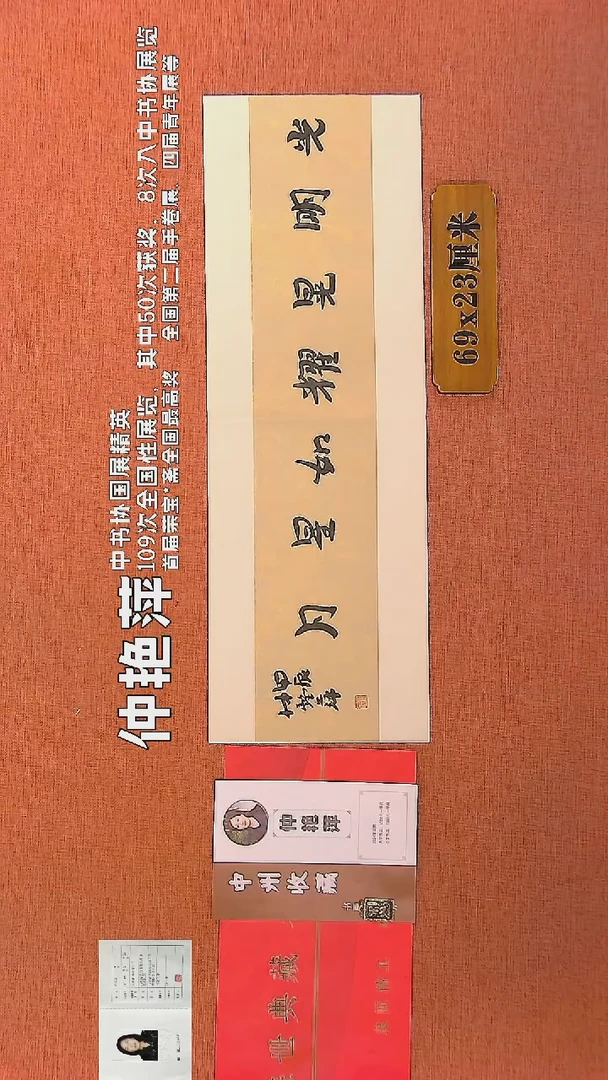 仲艳萍
中书协国展精英
109次全国性展览，其中50次获奖，8次入中书协展览
首届荣宝*斋全国最高奖 全国第二届手卷展、四届青年展等
光明晃耀如星月
69x23厘米
仲艳萍
中州收藏
世典藏